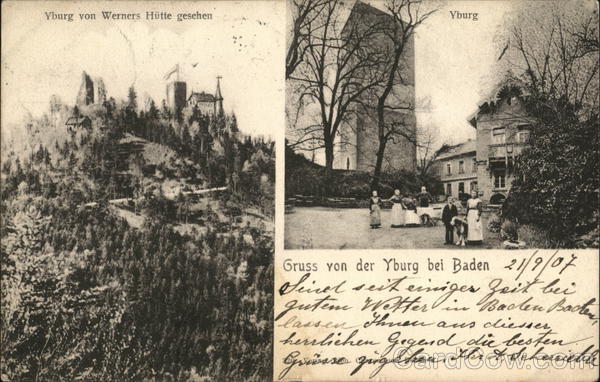 Yburg von Werners Hütte gesehen
Yburg
Gruss von der Yburg bei Baden 21/9/07
Sind seit einiger Zeit bei
gutem Wetter in Baden Baden,
lassen Ihnen aus dieser
herrlichen Gegend die besten
Grüsse zugehen.
CardCow.com